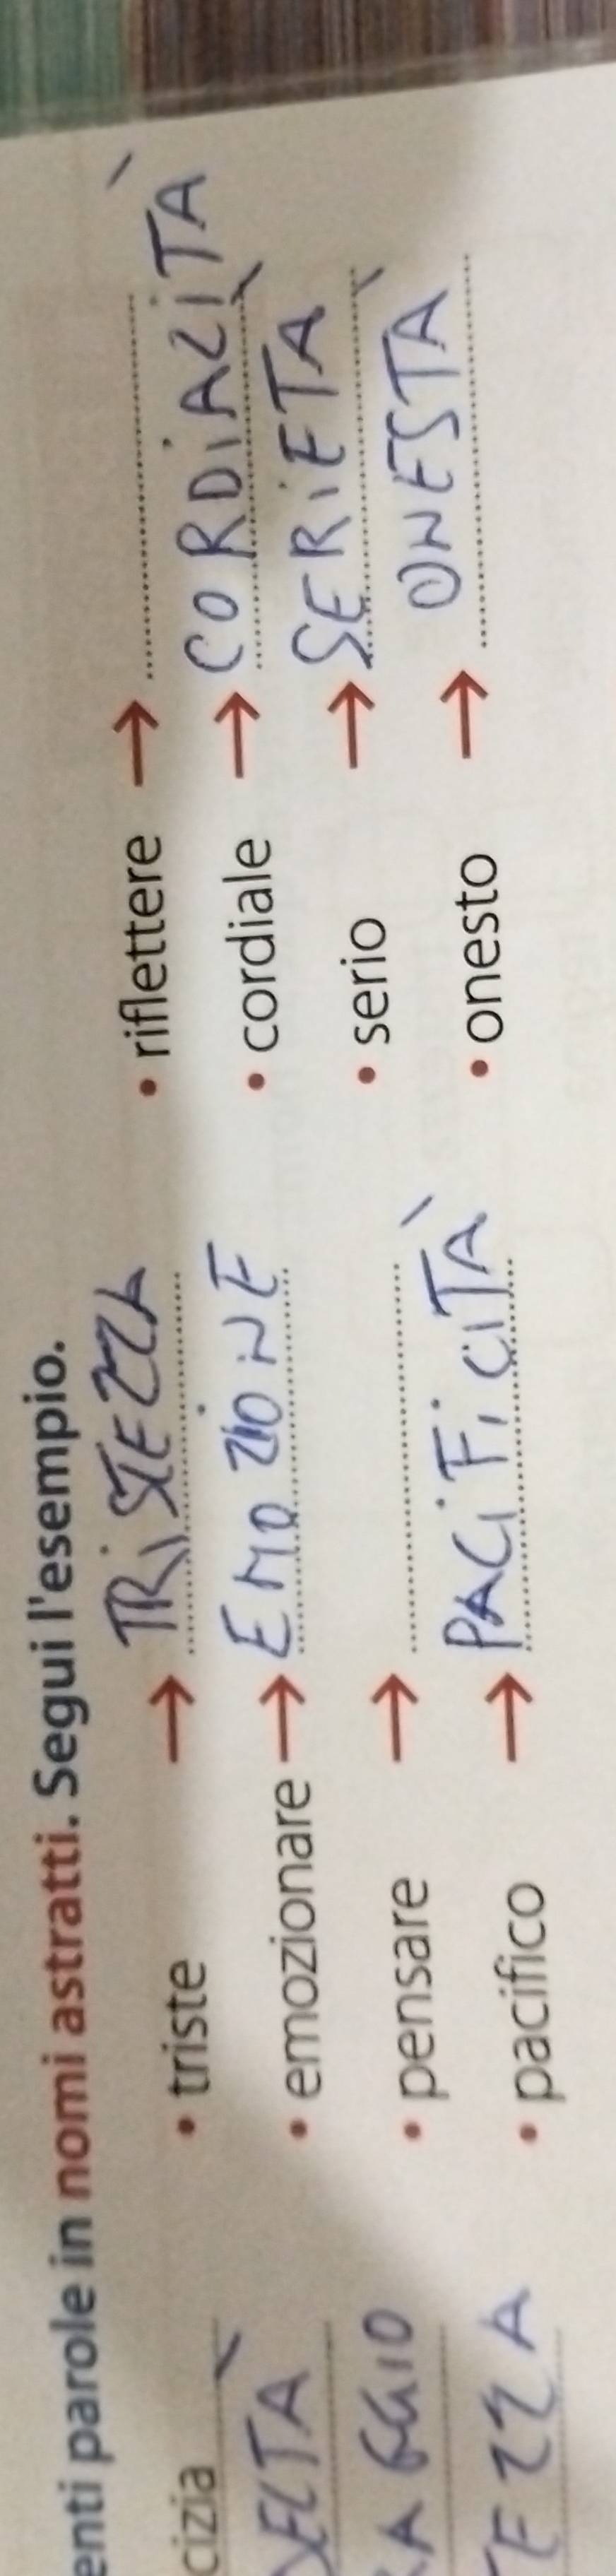 enti parole in nomi astratti. Segui l'esempio.
cizia • triste → TRISTEZZA • riflettere →
DELTÀ • emozionare → EMOZIONE • cordiale → CORDIALITÀ
RAGGIO • pensare → • serio → SERIETÀ
TEZZA • pacifico → PACIFICITÀ • onesto → ONESTÀ